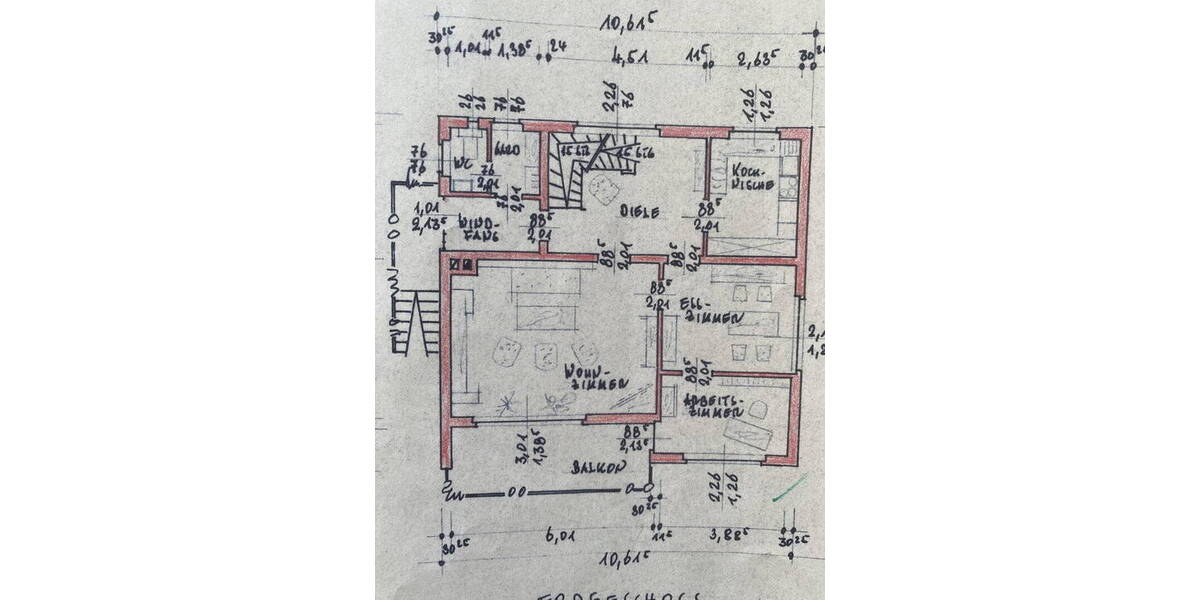 10,61⁵
30²⁵ 1,01 11⁵ 1,38⁵ 24 4,51 11⁵ 2,63⁵ 30
26 26 76 76 2,26 76 1,26 1,26
76 76
WC
76 2,01
15 STG 15 STG
KOCH-
NISCHE
1,01 2,13⁵
WIND-
FANG
76 2,01
88⁵ 2,01
DIELE
88⁵ 2,01
88⁵ 2,01
88⁵ 2,01
88⁵ 2,01
ESS-
ZIMMER
WOHN-
ZIMMER
88⁵ 2,01
ARBEITS-
ZIMMER
3,01 1,38⁵
88⁵ 2,13⁵
BALKON
2,26 1,26
30²⁵
30²⁵ 6,01 11⁵ 3,88⁵ 30²⁵
10,61⁵
ERDGESCHOSS